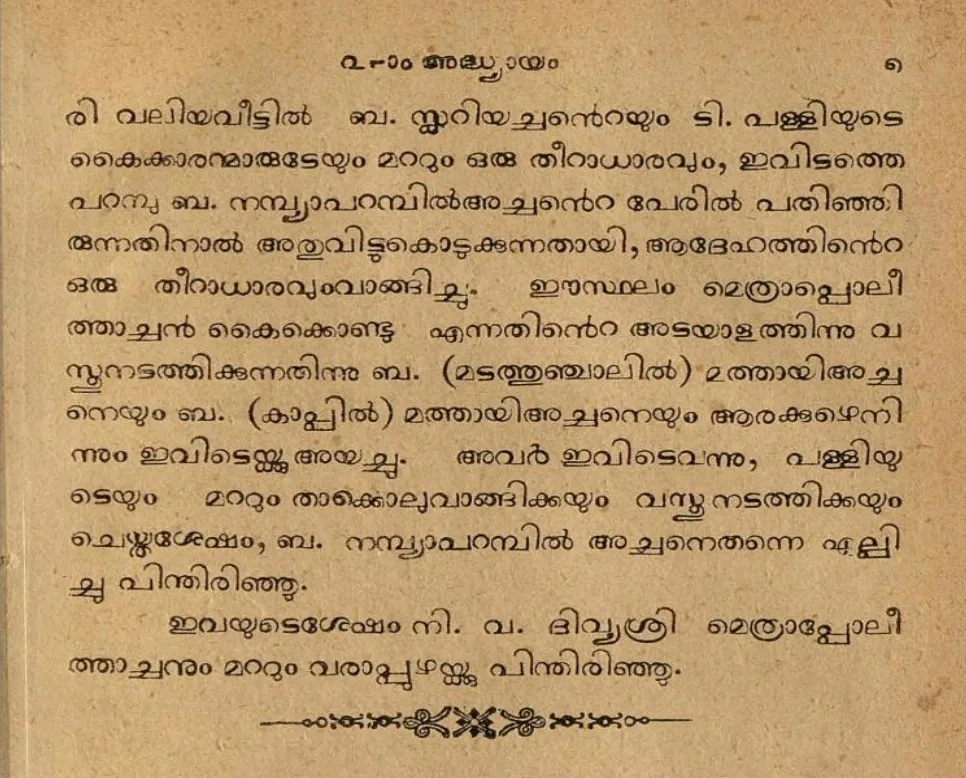 ൨൧ാം അദ്ധ്യായം ൭
രി വലിയവീട്ടിൽ ബ. സ്കറിയച്ചൻെറയും ടി. പള്ളിയുടെ
കൈക്കാരന്മാരുടേയും മററും ഒരു തീറാധാരവും, ഇവിടത്തെ
പറമ്പു ബ. നമ്പ്യാപറമ്പിൽഅച്ചൻെറ പേരിൽ പതിഞ്ഞി
രുന്നതിനാൽ അതുവിട്ടുകൊടുക്കുന്നതായി, ആദേഹത്തിൻെറ
ഒരു തീറാധാരവുംവാങ്ങിച്ചു. ഈസ്ഥലം മെത്രാപ്പൊലീ
ത്താച്ചൻ കൈക്കൊണ്ടു എന്നതിൻെറ അടയാളത്തിന്നു വ
സ്തുനടത്തിക്കുന്നതിന്നു ബ. (മടത്തുഞ്ചാലിൽ) മത്തായിഅച്ച
നെയും ബ. (കാപ്പിൽ) മത്തായിഅച്ചനെയും ആരക്കുഴെനി
ന്നും ഇവിടെയ്ക്കു അയച്ചു. അവർ ഇവിടെവന്നു, പള്ളിയു
ടെയും മററും താക്കൊലുവാങ്ങിക്കയും വസ്തു നടത്തിക്കയും
ചെയ്തശേഷം, ബ. നമ്പ്യാപറമ്പിൽ അച്ചനെതന്നെ എല്പി
ച്ചു പിന്തിരിഞ്ഞു.
ഇവയുടെശേഷം നി. വ. ദിവ്യശ്രി മെത്രാപ്പോലീ
ത്താച്ചനും മററും വരാപ്പുഴയ്ക്കു പിന്തിരിഞ്ഞു.